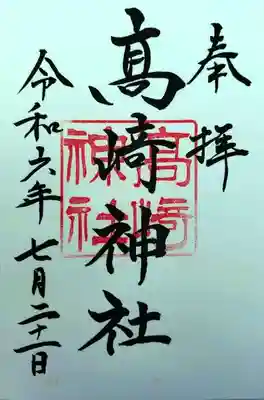 奉拝
髙崎神社
高崎
神社
令和六年七月二十一日